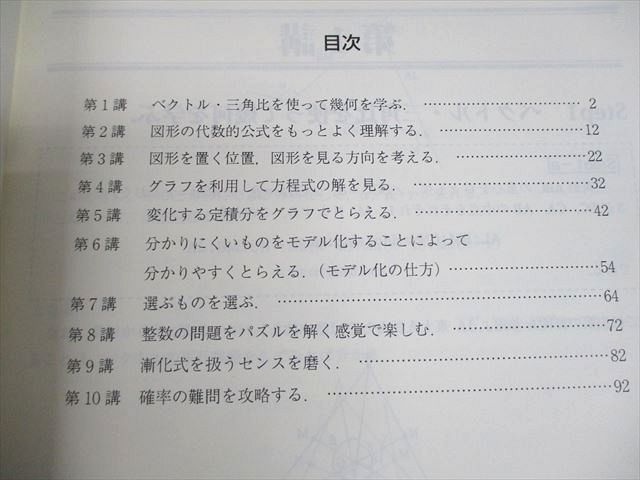 目次
第1講 ベクトル・三角比を使って幾何を学ぶ. ……………………… 2
第2講 図形の代数的公式をもっとよく理解する. ……………………… 12
第3講 図形を置く位置,図形を見る方向を考える. ……………………… 22
第4講 グラフを利用して方程式の解を見る. ……………………… 32
第5講 変化する定積分をグラフでとらえる. ……………………… 42
第6講 分かりにくいものをモデル化することによって
分かりやすくとらえる.(モデル化の仕方) ……………………… 54
第7講 選ぶものを選ぶ. ……………………… 64
第8講 整数の問題をパズルを解く感覚で楽しむ. ……………………… 72
第9講 漸化式を扱うセンスを磨く. ……………………… 82
第10講 確率の難問を攻略する. ……………………… 92